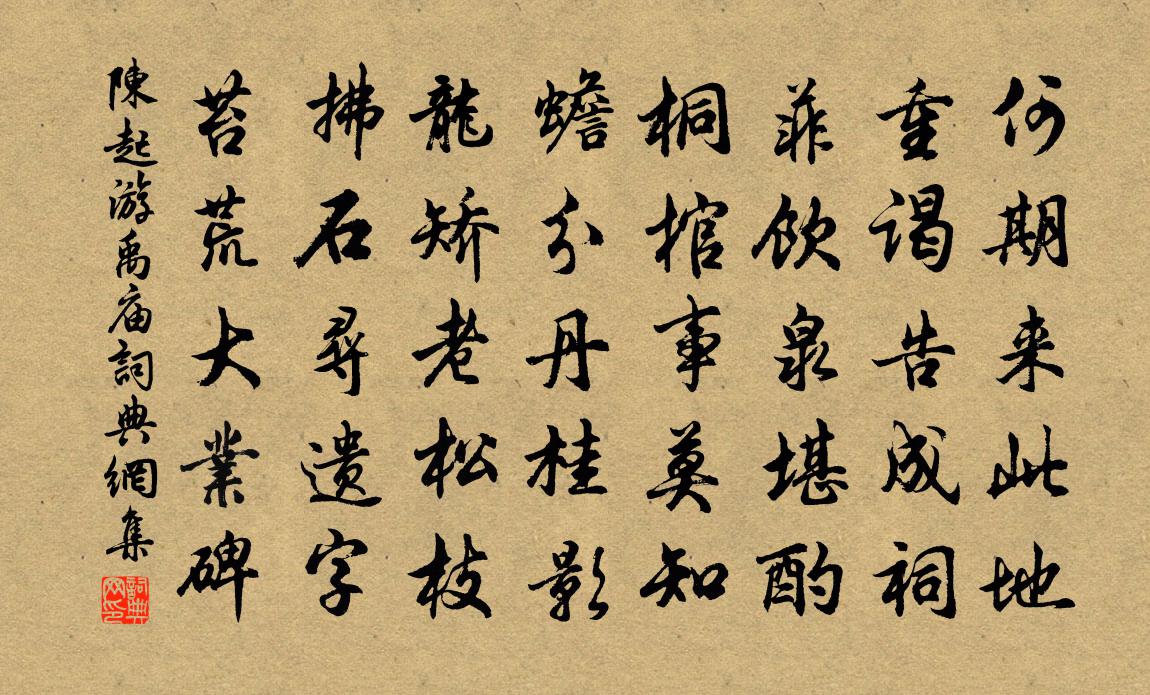 何期来此地
重谒告成祠
菲飲泉堪酌
桐棺事莫知
蟾分丹桂影
龍矯老松枝
拂石尋遗字
苔荒大業碑
陳起游禹庙詞典網集
詞典网印